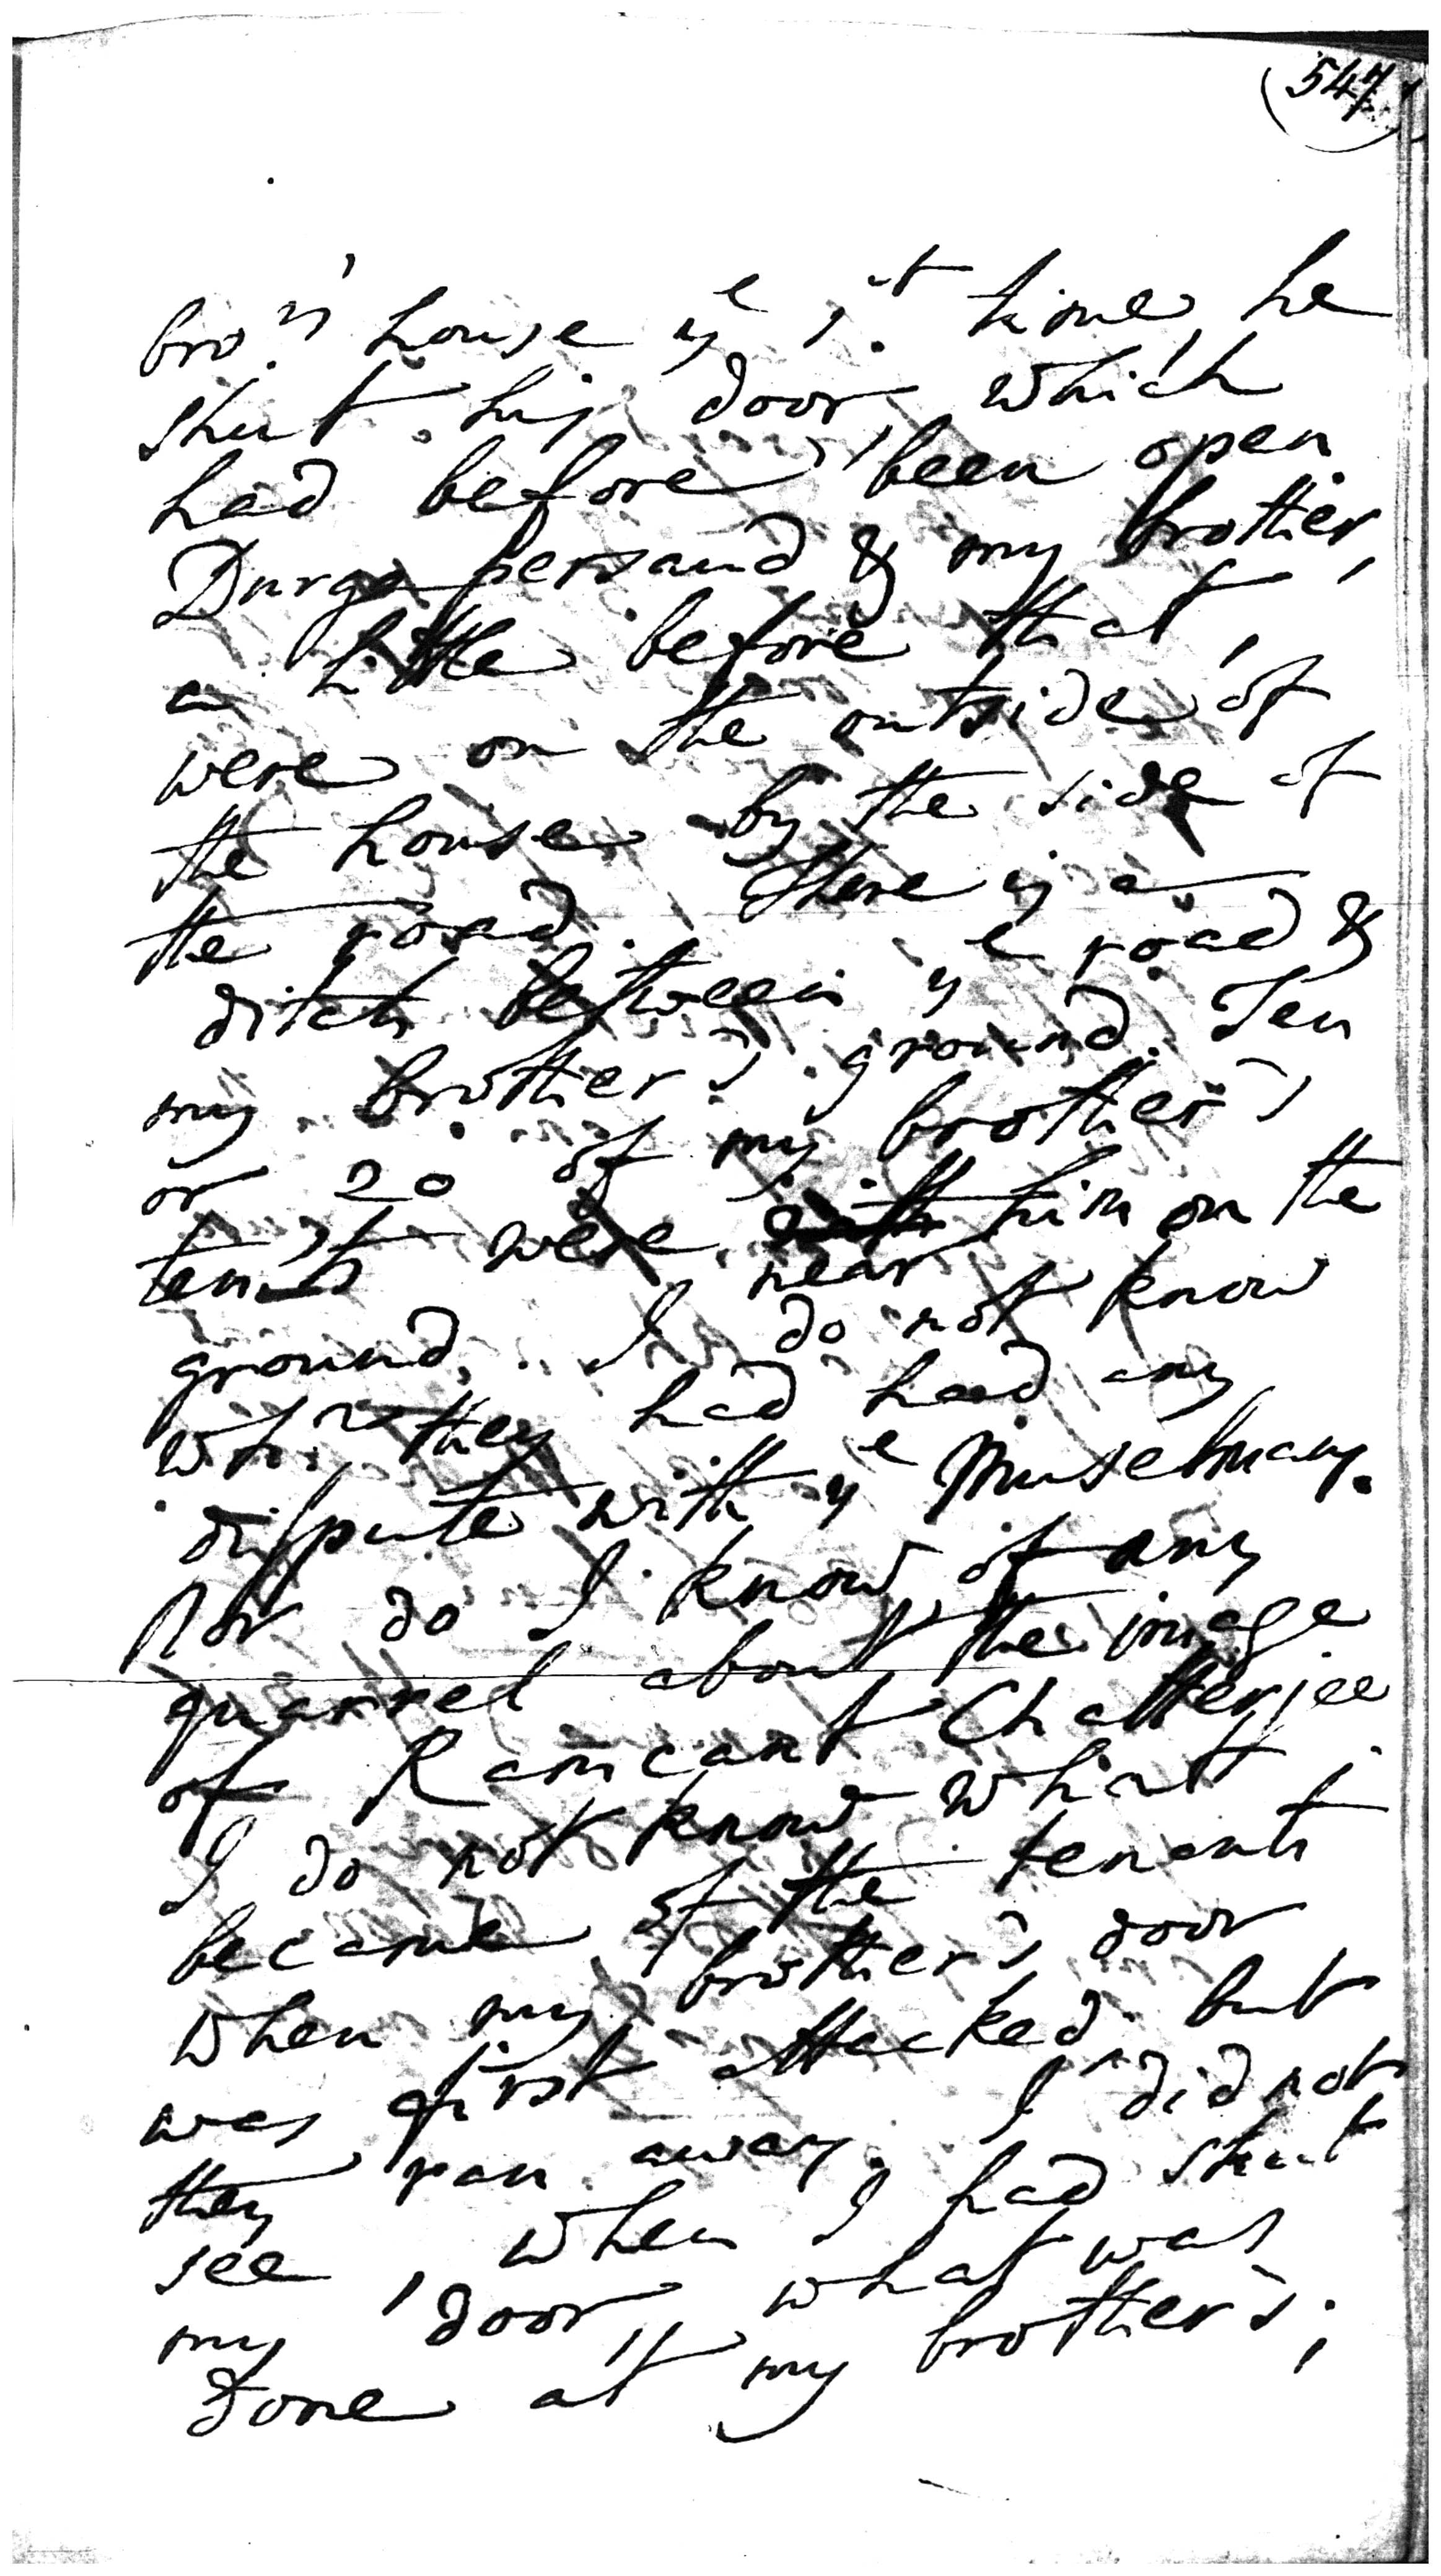 (547)
bro.r's house ye 1.st time, he
shut his door, which
had before been open.
Durga persaud & my brother,
a little before that,
were on the outside of
the house by the side of
the road. There is a
ditch between ye road &
my brother's ground. Ten
or 20 of my brother's
ten.ts were with near him on the
ground. I do not know
wh.r they had had any
dispute with ye Muselmans.
Nor do I know of any
quarrel about the image
of Ramcant Chatterjee
I do not know what
became of the tenants
when my brother's door
was first attacked but
they ran away. I did not
see, when I had shut
my door, what was
done at my brother's;